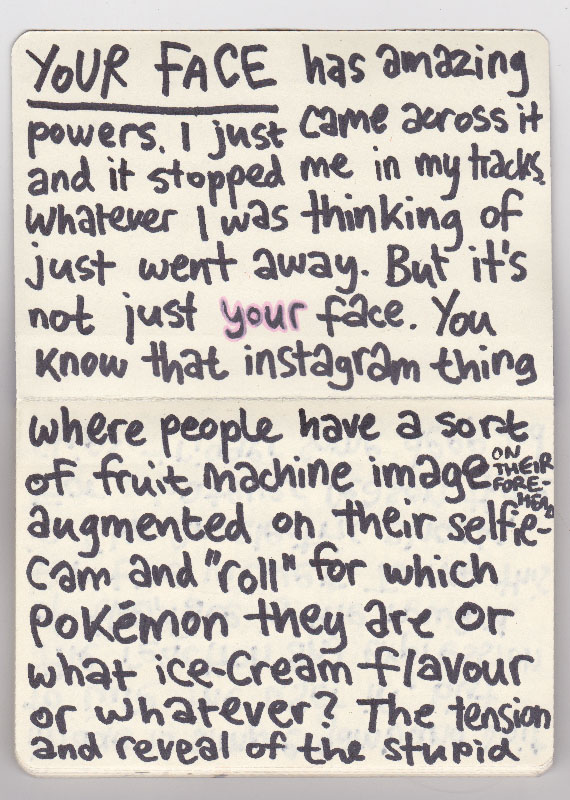 YOUR FACE has amazing
powers. I just came across it
and it stopped me in my tracks.
Whatever I was thinking of
just went away. But it's
not just your face. You
know that instagram thing
where people have a sort
of fruit machine image ON THEIR FORE-HEAD
augmented on their selfie-
cam and "roll" for which
pokémon they are or
what ice-cream flavour
or whatever? The tension
and reveal of the stupid